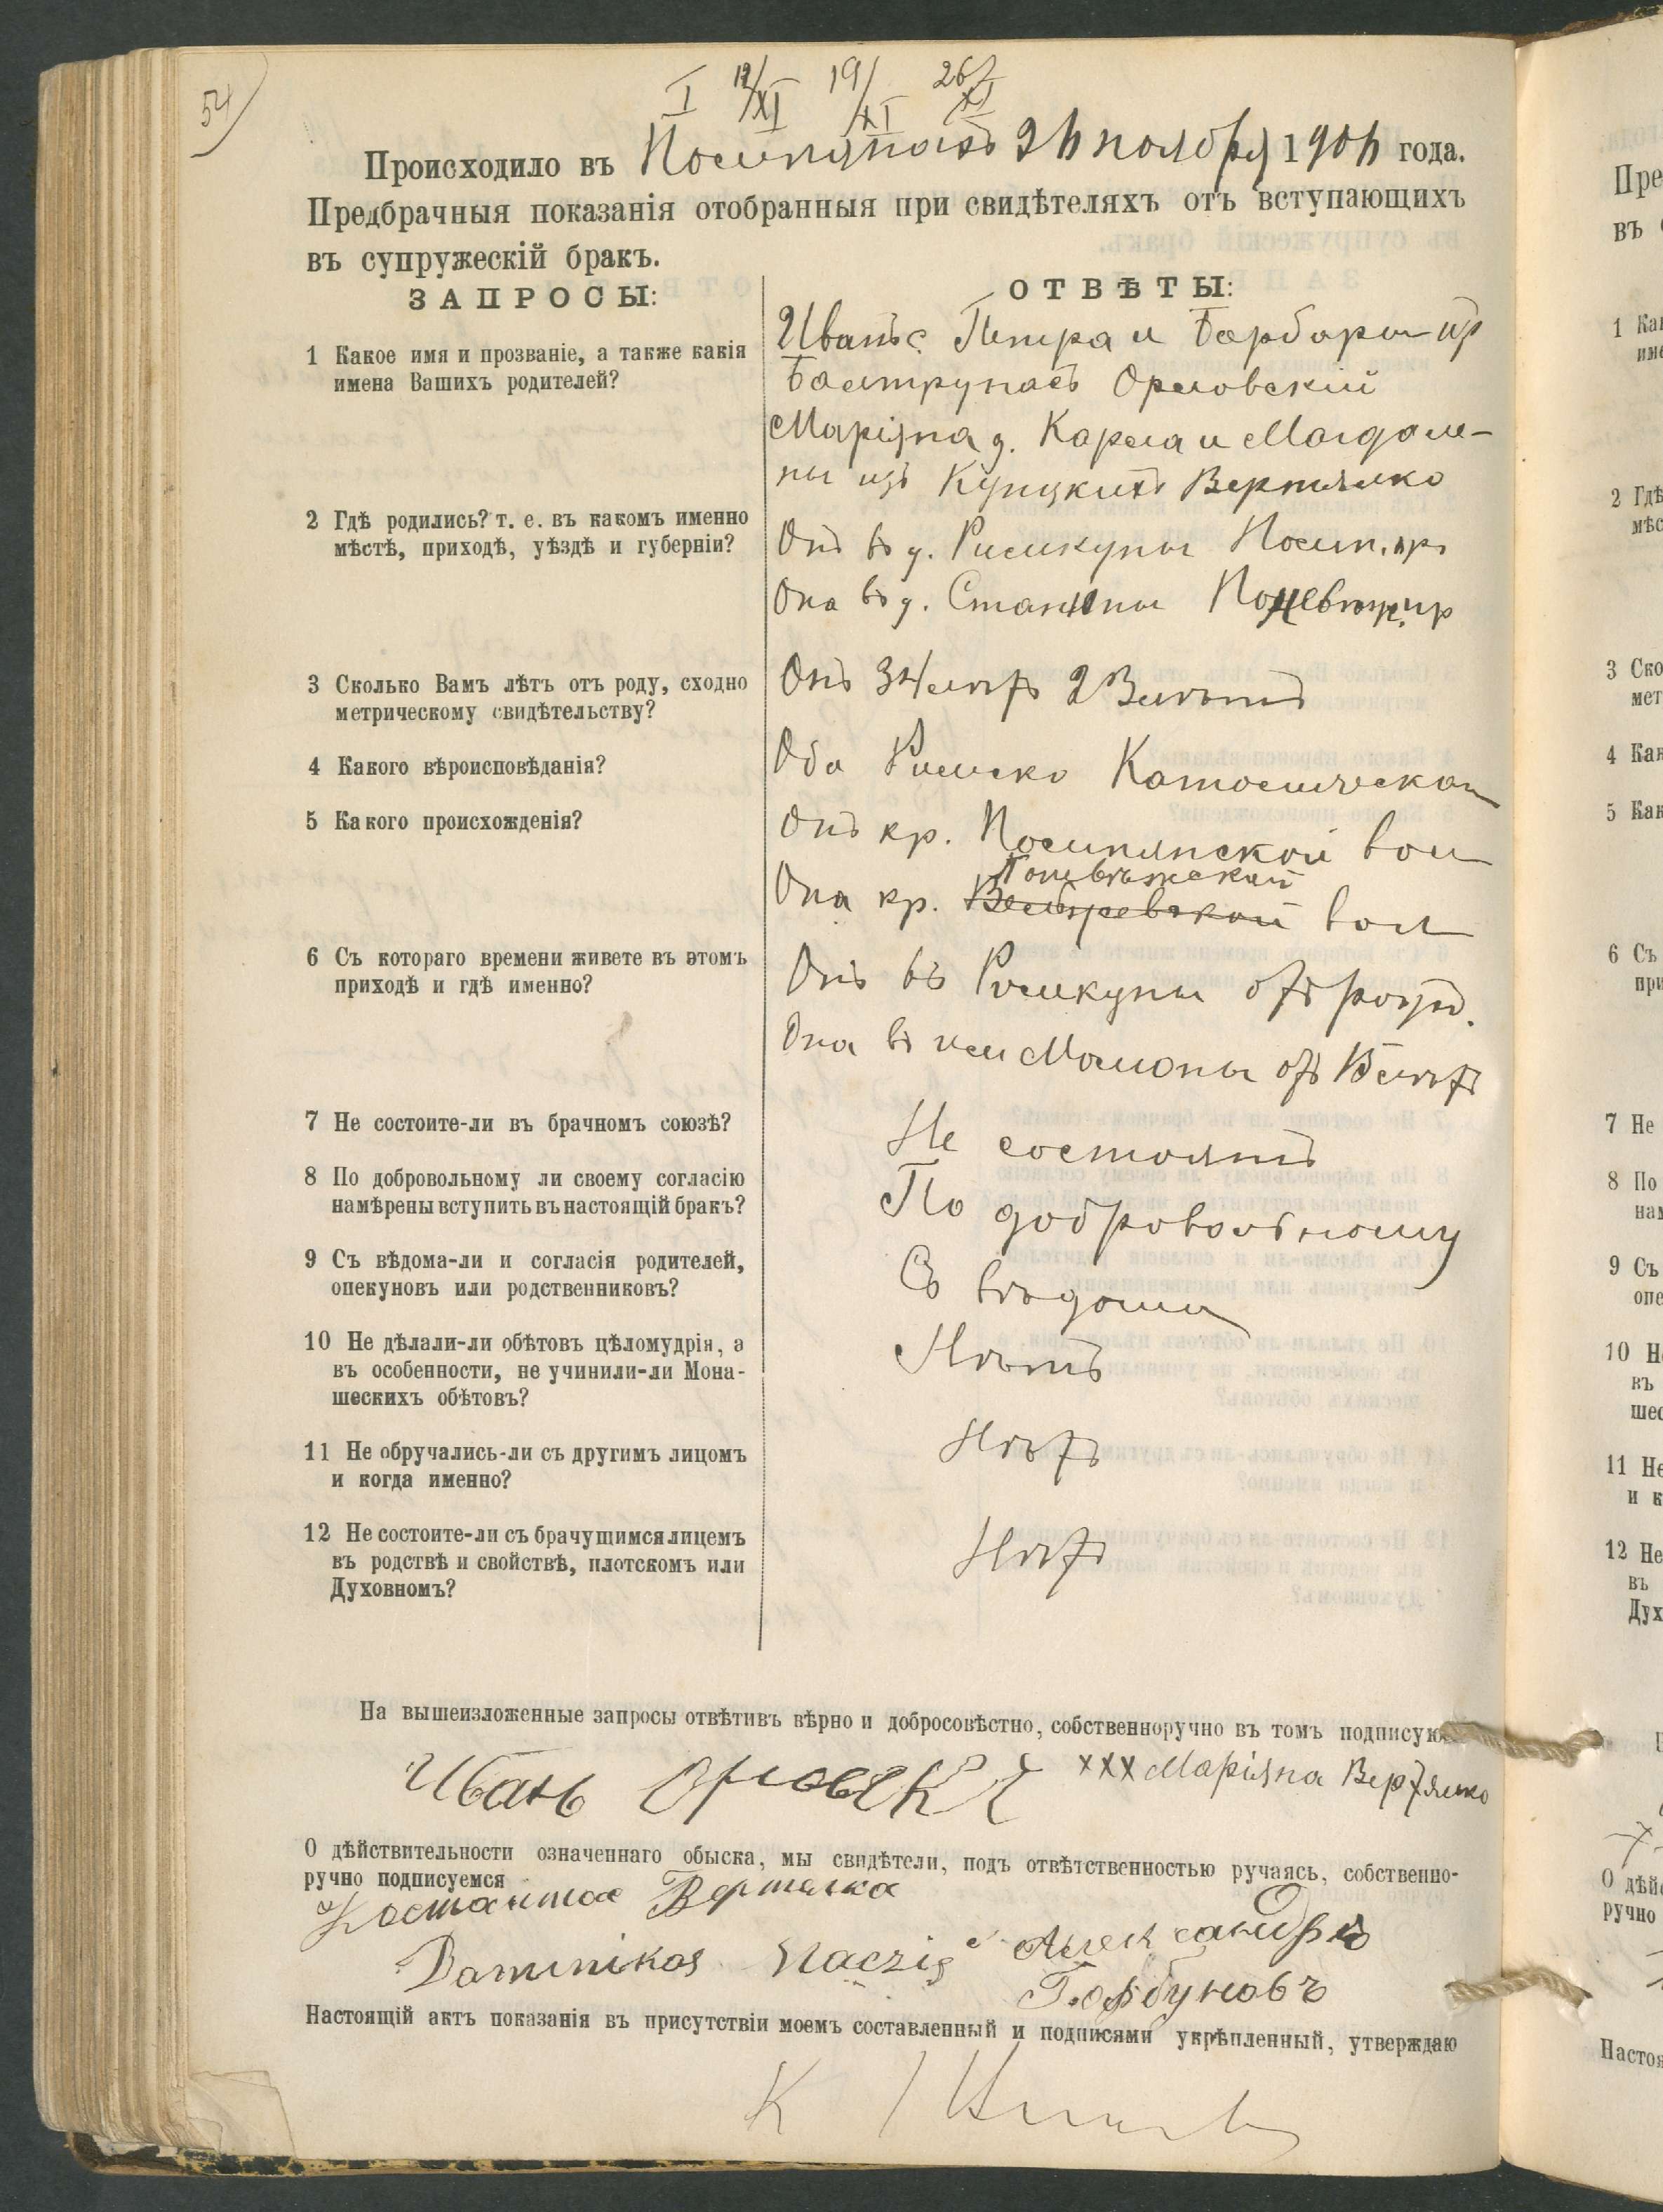 54
I 12/XI 19/XI 26/XI
Происходило въ 24 ноября 1904 года.
Предбрачныя показанія отобранныя при свидѣтеляхъ отъ вступающихъ
въ супружескій бракъ.
ЗАПРОСЫ:
ОТВѢТЫ:
1 Какое имя и прозваніе, а также какія
имена Вашихъ родителей?
Иванъ с. Петра и Барбары изъ
Орловскій
Маріяна д. Карла и Магдале-
ны изъ Вертялко
2 Гдѣ родились? т. е. въ какомъ именно
мѣстѣ, приходѣ, уѣздѣ и губерніи?
Онъ въ д. Римкуны
Она въ д.
3 Сколько Вамъ лѣтъ отъ роду, сходно
метрическому свидѣтельству?
Онъ 34 лѣтъ 23 лѣтъ
4 Какого вѣроисповѣданія?
Оба Римско Католическаго
5 Какого происхожденія?
Онъ кр. вол
Она кр. Поневѣжской вол
6 Съ котораго времени живете въ этомъ
приходѣ и гдѣ именно?
Онъ въ Римкуны отъ рожд.
Она въ отъ лѣтъ
7 Не состоите-ли въ брачномъ союзѣ?
Не состоятъ
8 По добровольному ли своему согласію
намѣрены вступить въ настоящій бракъ?
По добровольному
9 Съ вѣдома-ли и согласія родителей,
опекуновъ или родственниковъ?
Съ вѣдома
10 Не дѣлали-ли обѣтовъ цѣломудрія, а
въ особенности, не учинили-ли Мона-
шескихъ обѣтовъ?
Нѣтъ
11 Не обручались-ли съ другимъ лицомъ
и когда именно?
Нѣтъ
12 Не состоите-ли съ брачущимся лицемъ
въ родствѣ и свойствѣ, плотскомъ или
Духовномъ?
Нѣтъ
На вышеизложенные запросы отвѣтивъ вѣрно и добросовѣстно, собственноручно въ томъ
Иванъ xxx Маріяна Вертялко
О дѣйствительности означеннаго обыска, мы свидѣтели, подъ отвѣтственностью ручаясь, собственно-
ручно подписуемся
Dominikas Александръ
Горбуновъ
Настоящій актъ показанія въ присутствіи моемъ составленный и подписями укрѣпленный, утверждаю